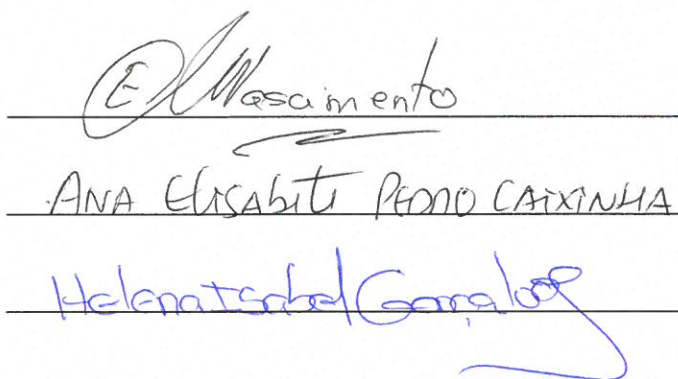 E Nascimento
ANA ElisAbiti PEDRO CAIXINHA
Helena Isabel Gonçalves